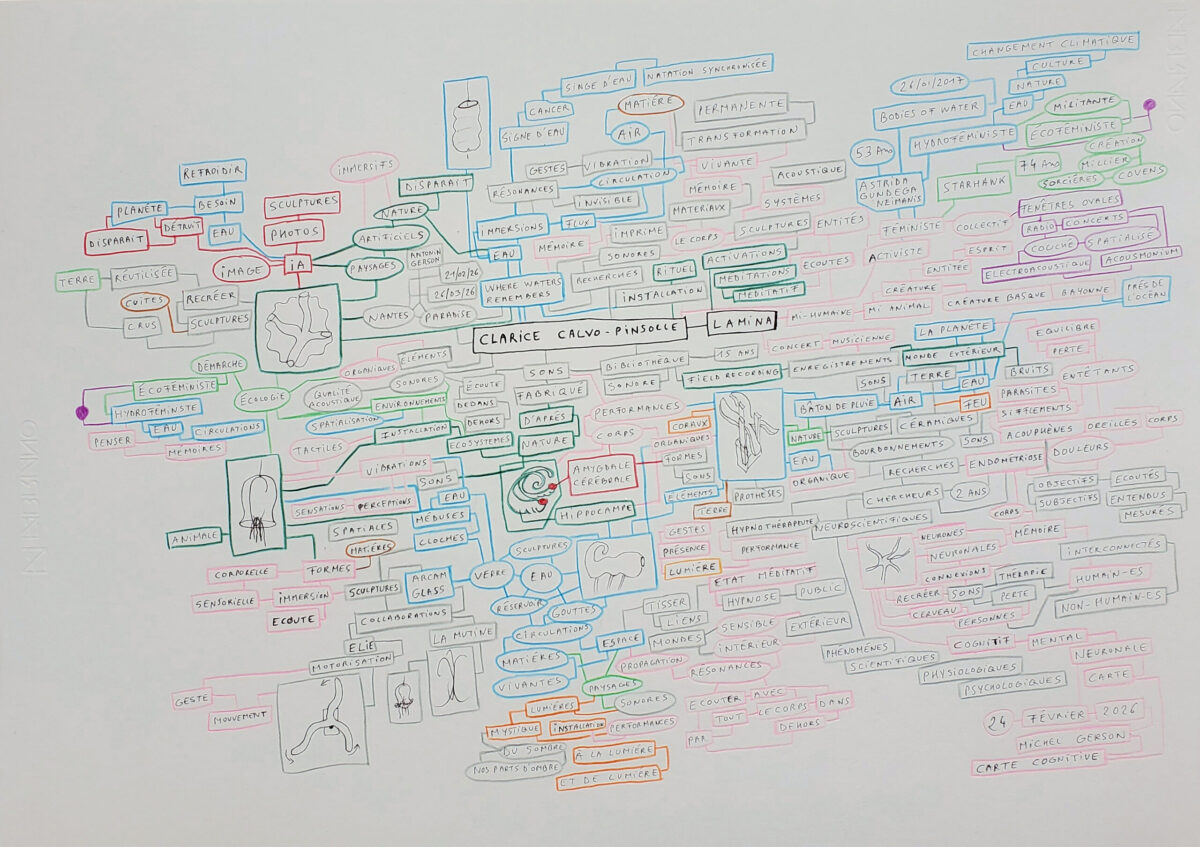 CHANGEMENT CLIMATIQUE
CULTURE
NATURE
EAU
26/01/2017
BODIES OF WATER
HYDROFÉMINISTE
MIRITANTE
ÉCOFÉMINISTE
CRÉATION
MILLIER
COVENS
SORCIÈRES
74 ANS
STARHAWK
53 ANS
ASTRIDA
GUNDEGA
NEIMANIS
FÉMINISTE
COLLECTIF
ACTIVISTE
ESPRIT
ENTITÉE
FENÊTRES OVALES
RADIO
CONCERTS
COUCHÉ
SPATIALISÉ
ELECTROACOUSTIQUE
ACOUSMONIUM
CRÉATURE
MI-HUMAINE
MI ANIMAL
CRÉATURE BASQUE
BAYONNE
PRÈS DE
L'OCÉAN
SINGE D'EAU
NATATION SYNCHRONISÉE
CANCER
SIGNE D'EAU
MATIÈRE
AIR
PERMANENTE
TRANSFORMATION
GESTES
VIBRATION
CIRCULATION
VIVANTE
RÉSONANCES
INVISIBLE
MÉMOIRE
MATERIAUX
ACOUSTIQUE
SYSTÈMES
IMMERSIONS
FLUX
EAU
MÉMOIRE
IMPRIME
LE CORPS
SCULPTURES
ENTITÉS
SONORES
RECHERCHES
RITUEL
INSTALLATION
ACTIVATIONS
MEDITATIONS
MEDITATIF
ÉCOUTES
WHERE WATERS
REMEMBERS
REFROIDIR
PLANÈTE
BESOIN
DISPARAIT
DÉTRUIT
EAU
SCULPTURES
PHOTOS
IMAGE
IA
IMMERSIFS
DISPARAIT
NATURE
ARTIFICIELS
PAYSAGES
ANTONIN
GERSON
21/02/26
26/03/26
NANTES
PARADISE
TERRE
RÉUTILISÉE
CUITES
RECRÉER
CRUS
SCULPTURES
CLARICE CALVO-PINSOLLE
LAMINA
DÉMARCHE
ÉCOFÉMINISTE
HYDROFÉMINISTE
EAU
CIRCULATIONS
PENSER
MEMOIRES
ÉCOLOGIE
ORGANIQUES
ÉLÉMENTS
QUALITÉ
ACOUSTIQUE
SONORES
ENVIRONNEMENTS
SPATIALISATION
ÉCOUTE
DEDANS
DEHORS
TACTILES
INSTALLATION
ECOSYSTEMES
SONS
FABRIQUE
D'APRÈS
NATURE
BIBLIOTHÈQUE
SONORE
15 ANS
CONCERT
MUSICIENNE
FIELD RECORDING
ENREGISTREMENTS
LA PLANÈTE
MONDE EXTÉRIEUR
TERRE
EAU
SONS
AIR
FEU
BÂTON DE PLUIE
EQUILIBRE
PERTE
BRUITS
ENTÊTANTS
PARASITES
SIFFLEMENTS
ACOUPHÈNES
OREILLES
CORPS
DOULEURS
NATURE
SCULPTURES
CÉRAMIQUES
SONS
BOURDONNEMENTS
EAU
ORGANIQUE
RECHERCHES
ENDOMÉTRIOSE
CHERCHEURS
2 ANS
OBJECTIFS
SUBJECTIFS
ECOUTÉS
ENTENDUS
MESURÉS
CORPS
MÉMOIRE
PERFORMANCES
CORPS
CORAUX
ORGANIQUES
FORMES
SONS
ÉLÉMENTS
TERRE
PROTHÈSES
AMYGDALE
CÉRÉBRALE
HIPPOCAMPE
VIBRATIONS
SONS
SENSATIONS
PERCEPTIONS
EAU
MÉDUSES
CLOCHES
SPATIALES
MATIÈRES
ANIMALE
CORPORELLE
FORMES
SENSORIELLE
IMMERSION
ECOUTE
SCULPTURES
ARCAM
GLASS
VERRE
EAU
SCULPTURES
RÉSERVOIR
GOUTTES
CIRCULATIONS
COLLABORATIONS
ELIE
LA MUTINE
MOTORISATION
GESTE
MOUVEMENT
GESTES
PRÉSENCE
LUMIÈRE
HYPNOTHÉRAPEUTE
PERFORMANCE
ETAT MÉDITATIF
HYPNOSE
PUBLIC
TISSER
LIENS
MONDES
SENSIBLE
INTÉRIEUR
EXTÉRIEUR
ESPACE
MATIÈRES
VIVANTES
PROPAGATION
RÉSONANCES
PAYSAGES
SONORES
LUMIÈRES
MYSTIQUE
INSTALLATION
PERFORMANCES
DU SOMBRE
NOS PARTS D'OMBRE
A LA LUMIÈRE
ET DE LUMIÈRE
ECOUTER
AVEC
TOUT
LE CORPS
DANS
DEHORS
PAR
NEUROSCIENTIFIQUES
NEURONES
NEURONALES
CONNEXIONS
RECRÉER
SONS
THÉRAPIE
PERTE
CERVEAU
PERSONNES
INTERCONNECTÉS
HUMAIN-ES
NON-HUMAIN-ES
COGNITIF
MENTAL
NEURONALE
CARTE
PHÉNOMÈNES
SCIENTIFIQUES
PHYSIOLOGIQUES
PSYCHOLOGIQUES
24 FÉVRIER 2026
MICHEL GERSON
CARTE COGNITIVE